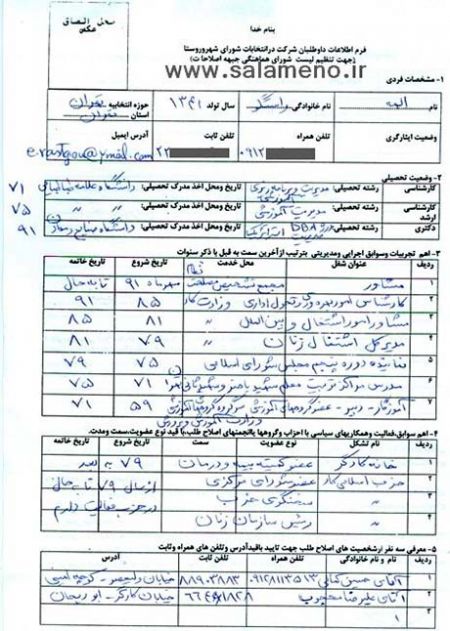 محل الصاق
عکس
بنام خدا
فرم اطلاعات داوطلبان شرکت در انتخابات شورای شهر و روستا
(جهت تنظیم لیست شورای هماهنگی جبهه اصلاحات)
www.salameno.ir
۱- مشخصات فردی
نام الهه نام خانوادگی راستگو سال تولد ۱۳۴۱ حوزه انتخابیه تهران
استان تهران
وضعیت ایثارگری تلفن همراه ۰۹۱۲ تلفن ثابت ۲۲ آدرس ایمیل
e.rastgou@ymail.com
۲- وضعیت تحصیلی
کارشناسی رشته تحصیلی: مدیریت و برنامه‌ریزی آموزشی تاریخ ومحل اخذ مدرک تحصیلی: دانشگاه علامه طباطبایی ۷۱
کارشناسی ارشد رشته تحصیلی: مدیریت آموزشی تاریخ ومحل اخذ مدرک تحصیلی: " " ۷۵
دکتری رشته تحصیلی: DBA مدیریت استراتژیک تاریخ ومحل اخذ مدرک تحصیلی: دانشگاه صنایع ۹۱
۳- اهم تجربیات وسوابق اجرایی ومدیریتی بترتیب از آخرین سمت به قبل با ذکر سنوات
ردیف عنوان شغل محل خدمت تاریخ شروع خاتمه
۱ مشاور مجمع تشخیص مصلحت نظام مهرماه ۹۱ تا به حال
۲ کارشناس امور بهره‌وری و تحول اداری وزارت کار ۸۵ ۹۱
۳ مشاور امور اشتغال و بین‌الملل " ۸۱ ۸۵
۴ مدیرکل اشتغال زنان " ۷۹ ۸۱
۵ نماینده دوره پنجم مجلس شورای اسلامی ۷۵ ۷۹
۶ مدرس مراکز تربیت معلم شهید باهنر و شهید شرافت تهران ۷۱ ۷۵
۷ آموزگار - دبیر - عضو گروههای آموزشی سرگروه گروههای آموزشی ۵۹ ۷۱
وزارت آموزش و پرورش
۴- اهم سوابق، فعالیت وهمکاریهای سیاسی با احزاب وگروهها یا انجمنهای اصلاح طلب، با قید نوع عضویت، سمت ومدت.
ردیف نام تشکل نوع عضویت سمت تاریخ شروع خاتمه
۱ خانه کارگر عضو کمیته بیمه و درمان ۷۹ به بعد
۲ حزب اسلامی کار عضو شورای مرکزی از سال ۷۹ تا به حال
۳ " سخنگوی حزب در حزب فعالیت دارم
۴ " رئیس سازمان زنان
۵- معرفی سه نفر ازشخصیت های اصلاح طلب جهت تایید باقید آدرس وتلفن های همراه وثابت
ردیف نام و نام خانوادگی تلفن همراه تلفن ثابت آدرس
۱ آقای حسین کمالی ۰۹۱۲۸۱۱۳۵۱۳ ۸۸۹۰۳۸۸۳ خیابان ولیعصر - کوچه
۲ آقای علیرضا محجوب خیابان کارگر - ابوریحان
۳